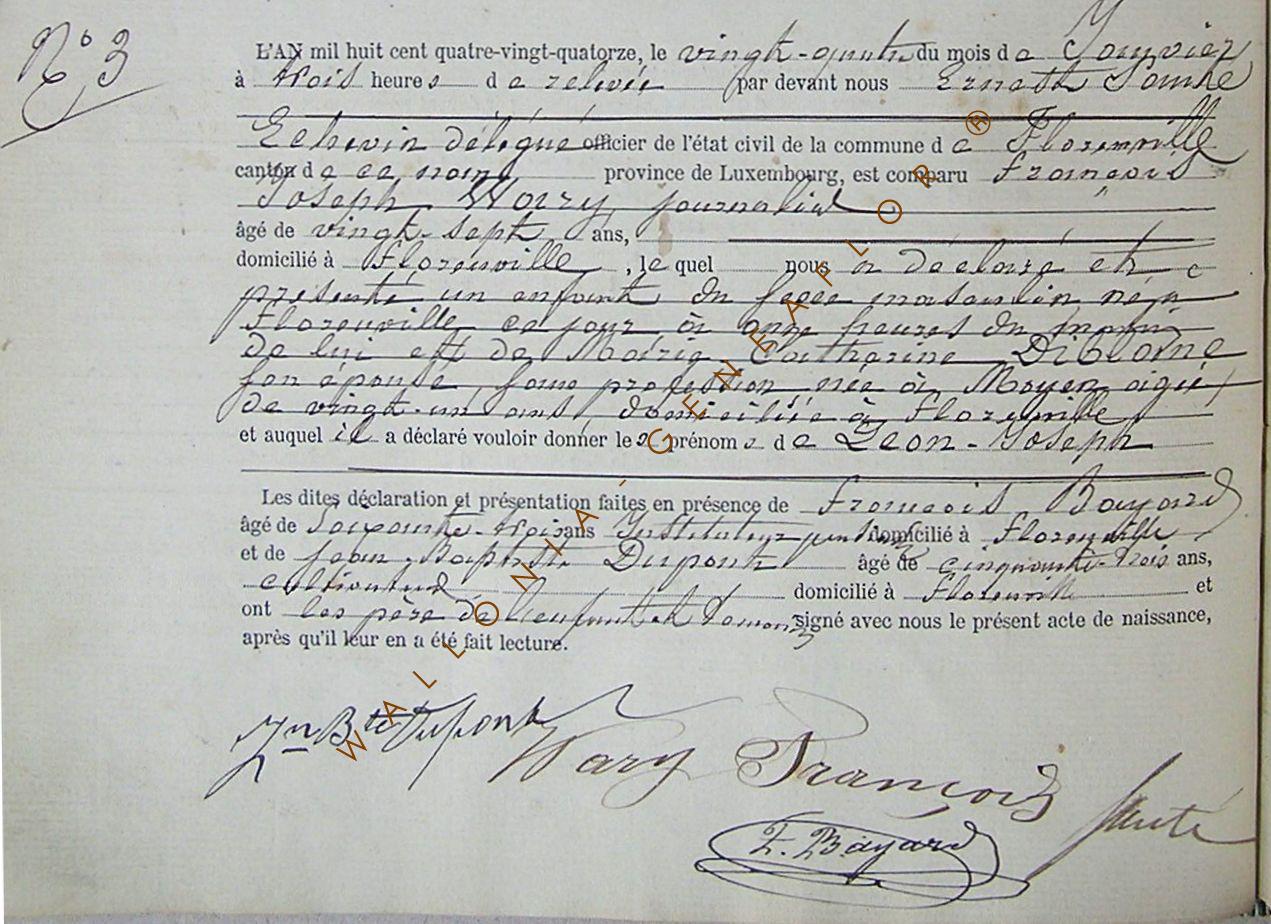 N° 3
L'AN mil huit cent quatre-vingt-quatorze, le vingt-quatre du mois de Janvier
à trois heures de relevée par devant nous Ernest
Echevin délégué officier de l'état civil de la commune de Florenville
canton de ce nom, province de Luxembourg, est comparu François
Joseph Wary journalier
âgé de vingt-sept ans,
domicilié à Florenville, lequel nous a déclaré et
présenté un enfant du sexe masculin né à
Florenville ce jour à onze heures du matin
de lui et de Marie Catherine
son épouse, sans profession née à Moyen âgée
de vingt-un ans, domiciliée à Florenville
et auquel il a déclaré vouloir donner les prénoms de Léon-Joseph
Les dites déclaration et présentation faites en présence de François Bayard
âgé de soixante-trois ans Instituteur domicilié à Florenville
et de Jean-Baptiste Dupont âgé de cinquante-trois ans,
cultivateur domicilié à Florenville et
ont les père de l'enfant et témoins signé avec nous le présent acte de naissance,
après qu'il leur en a été fait lecture.
Jn Bte Dupont
Wary François
F. Bayard
WALLONIA - GENEAFLOR ®